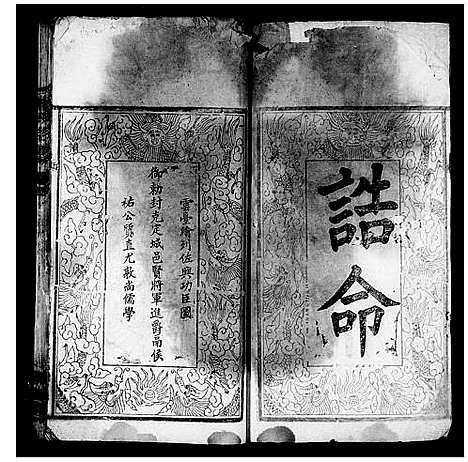 誥命
雲臺繪列佐興功臣圖
御勅封克定城邑賢將軍進爵南侯
祐公賢直尤敬尚儒學